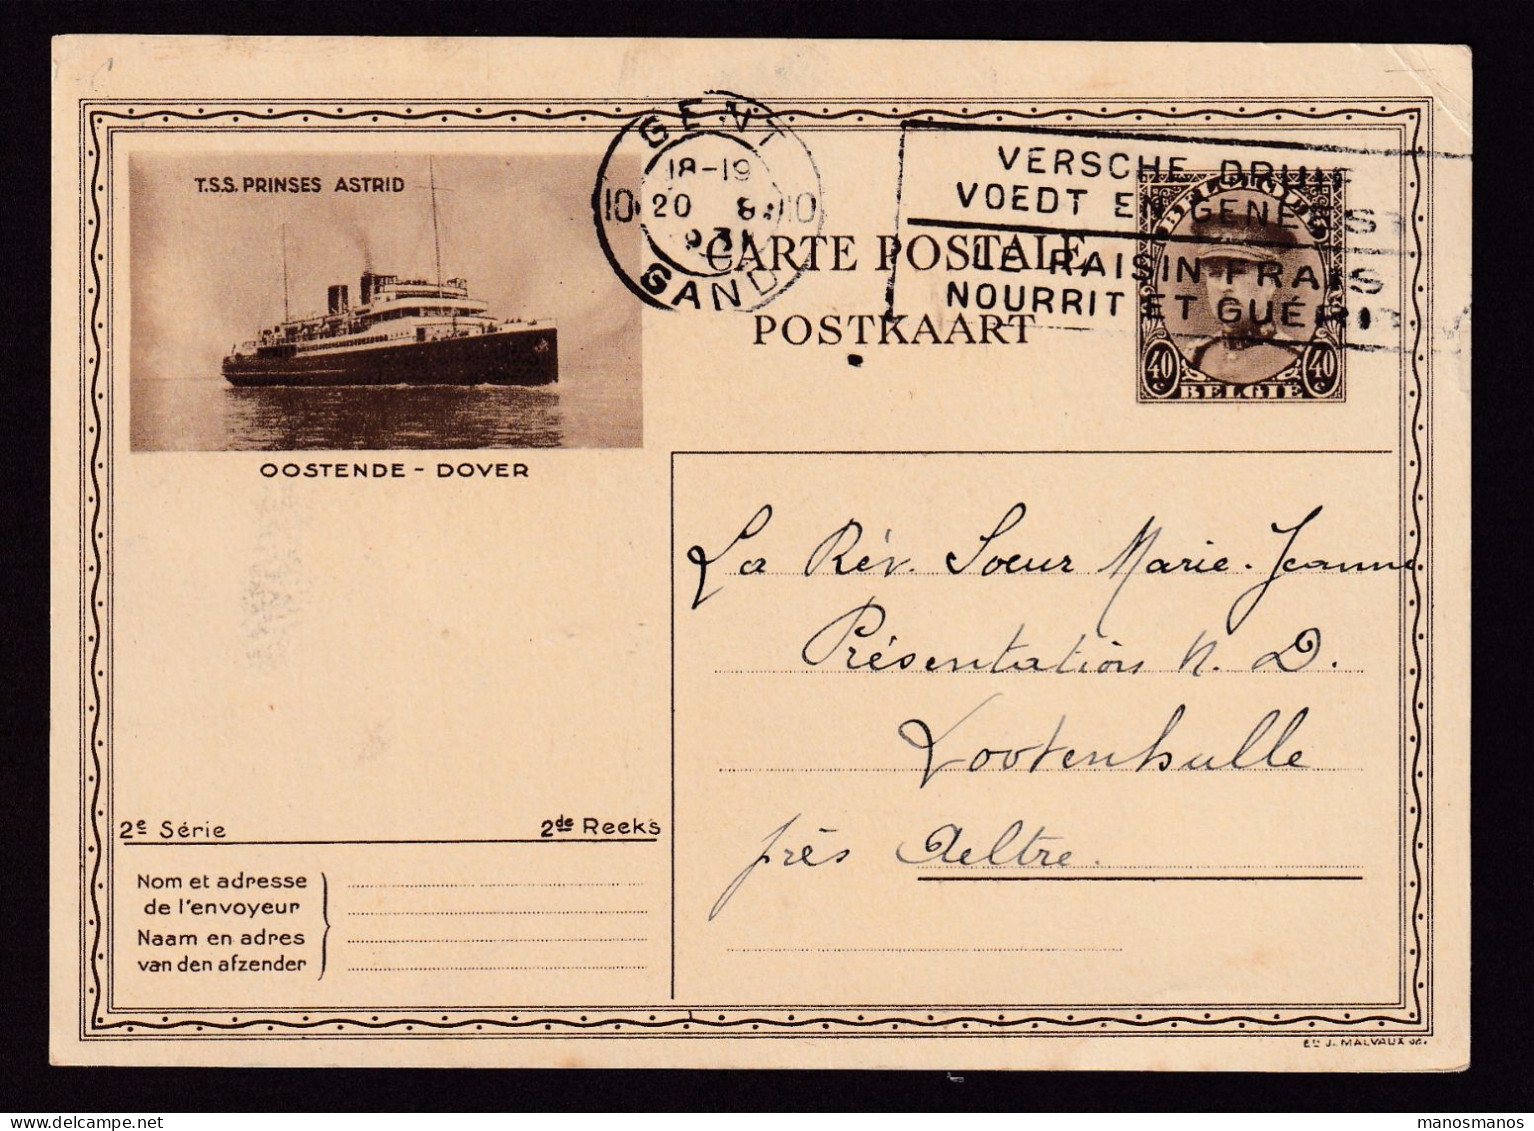 T.S.S. PRINSES ASTRID
OOSTENDE - DOVER
GENT
18-19
10 20 8 10
GAND
VERSCHE DRUIF
VOEDT EN GENEEST
LE RAISIN FRAIS
NOURRIT ET GUÉRIT
CARTE POSTALE
POSTKAART
BELGIQUE
40 c 40 c
BELGIË
La Rév. Soeur Marie-Jeanne
Présentation N. D.
Lootenhulle
près Aeltre.
2e Série 2de Reeks
Nom et adresse
de l'envoyeur
Naam en adres
van den afzender
Ets J. MALVAUX sc.
manosmanos